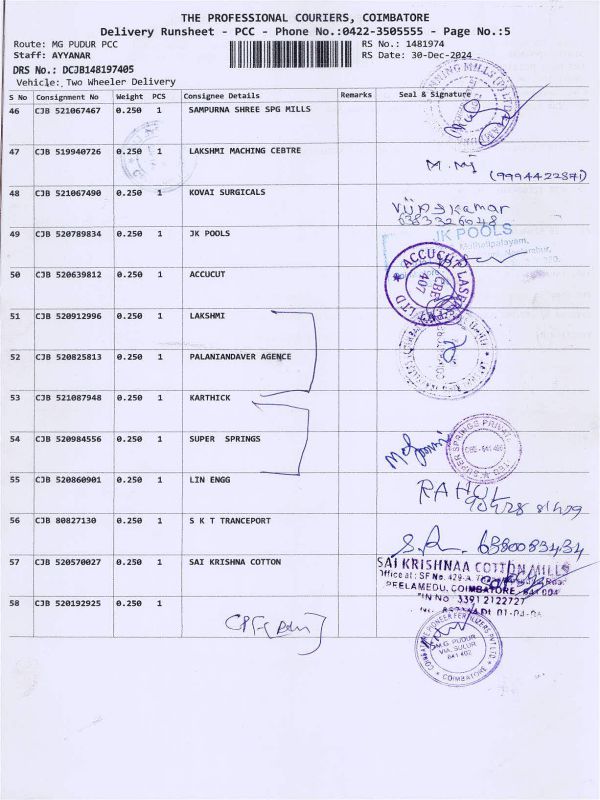 THE PROFESSIONAL COURIERS, COIMBATORE
Delivery Runsheet - PCC - Phone No.:0422-3505555 - Page No.:5
Route: MG PUDUR PCC
RS No.: 1481974
Staff: AYYANAR
RS Date: 30-Dec-2024
DRS No.: DCJB148197405
Vehicle: Two Wheeler Delivery
S No Consignment No Weight PCS Consignee Details Remarks Seal & Signature
46 CJB 521067467 0.250 1 SAMPURNA SHREE SPG MILLS
47 CJB 519940726 0.250 1 LAKSHMI MACHING CEBTRE
(9994422871)
48 CJB 521067490 0.250 1 KOVAI SURGICALS
6383326048
49 CJB 520789834 0.250 1 JK POOLS
JK POOLS
50 CJB 520639812 0.250 1 ACCUCUT
ACCUCUT
407
51 CJB 520912996 0.250 1 LAKSHMI
52 CJB 520825813 0.250 1 PALANIANDAVER AGENCE
53 CJB 521087948 0.250 1 KARTHICK
54 CJB 520984556 0.250 1 SUPER SPRINGS
SUPER SPRINGS
55 CJB 520860901 0.250 1 LIN ENGG
RAHUL
56 CJB 80827130 0.250 1 S K T TRANCEPORT
6380083434
57 CJB 520570027 0.250 1 SAI KRISHNA COTTON
SAI KRISHNAA COTTON MILLS
Office at : SF No. 429-A,
PEELAMEDU, COIMBATORE - 641 004
58 CJB 520192925 0.250 1
PIONEER FERTILIZERS PVT LTD
M.G. PUDUR
VIA. SULUR
641 402
COIMBATORE